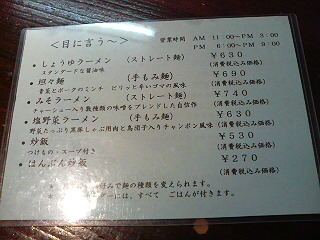 ＜目に言う～＞
営業時間 AM 11:00～PM 3:00
PM 6:00～PM 9:00
・しょうゆラーメン （ストレート麺） ￥630
スタンダードな醤油味 (消費税込み価格)
・坦々麺 （手もみ麺） ￥690
青菜とポークのミンチ ピリッと辛いゴマの風味 (消費税込み価格)
・みそラーメン （ストレート麺） ￥740
チャーシュー入り数種類の味噌をブレンドした自信作 (消費税込み価格)
・塩野菜ラーメン （手もみ麺） ￥630
野菜たっぷり黒豚しゃぶ用肉と魚揚子入りチャンポン風味 (消費税込み価格)
・炒飯 ￥530
つけもの・スープ付き (消費税込み価格)
・はんぶん炒飯 ￥270
(消費税込み価格)
好みで麺の種類を変えられます。
には、すべて ごはんが付きます。